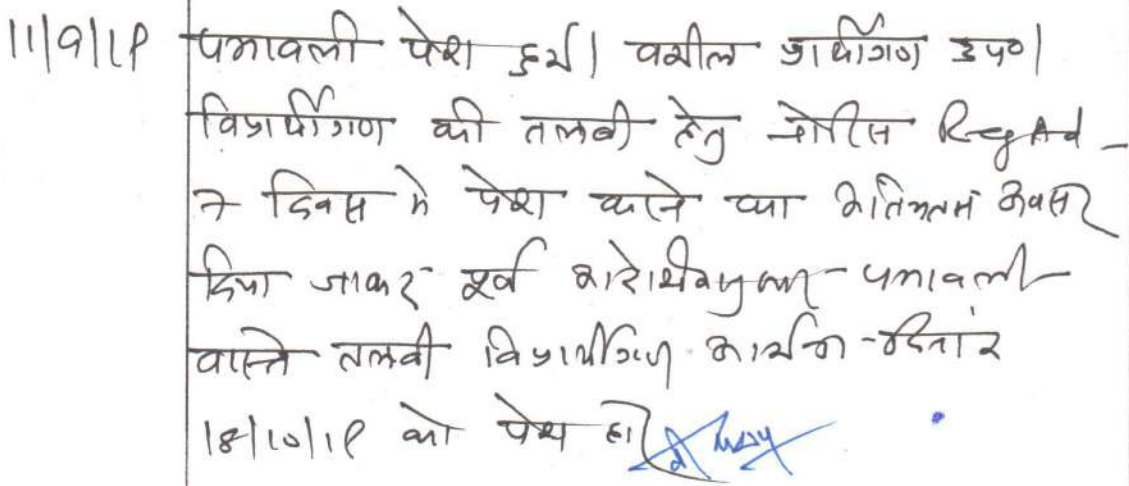 11/9/18 पत्रावली पेश हुई। वकील प्रार्थीगण उप०।
विप्रार्थीगण की तलबी हेतु नोटिस Reg Ad -
7 दिवस मे पेश करने का अवसर
दिया जाकर पूर्व पत्रावली
वास्ते तलबी विप्रार्थीगण
18/10/18 को पेश हो